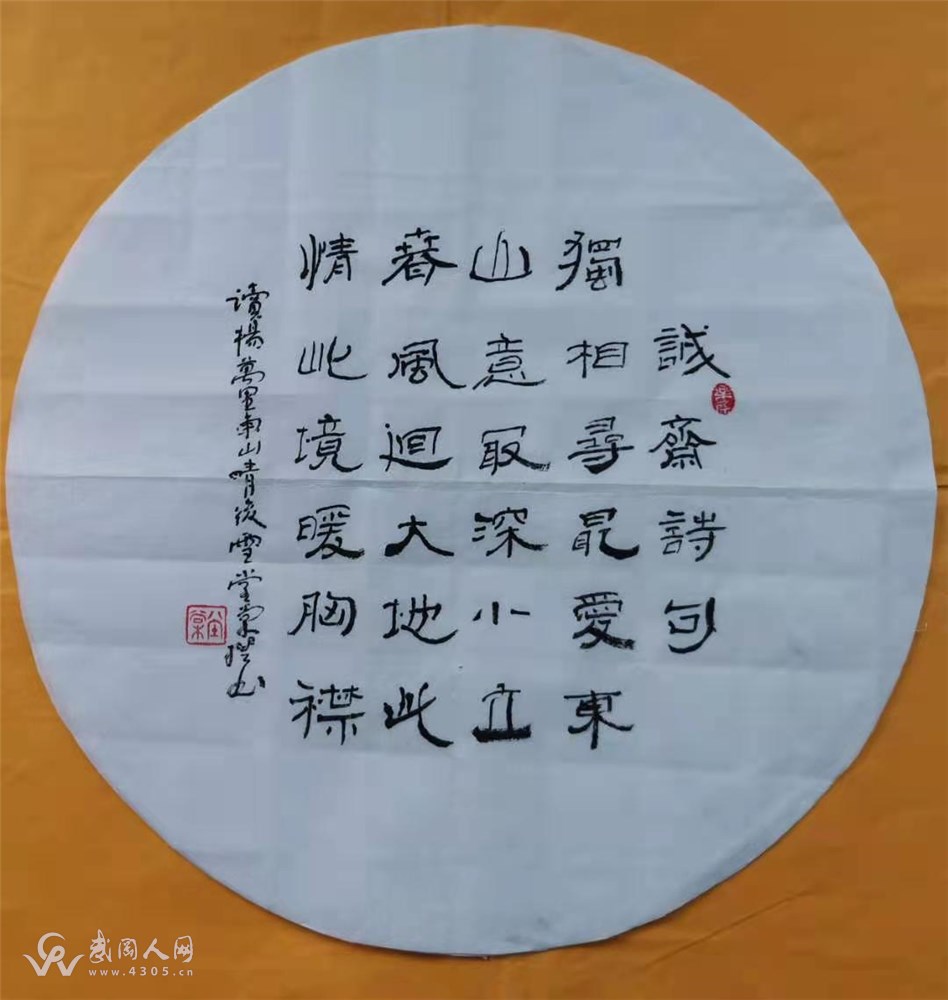 誠齋詩句
獨相尋最愛東
山意最深小立
春風迴大地此
情此境暖胸襟
讀楊萬里東山晴後雪堂棠
武冈人网
www.4305.cn